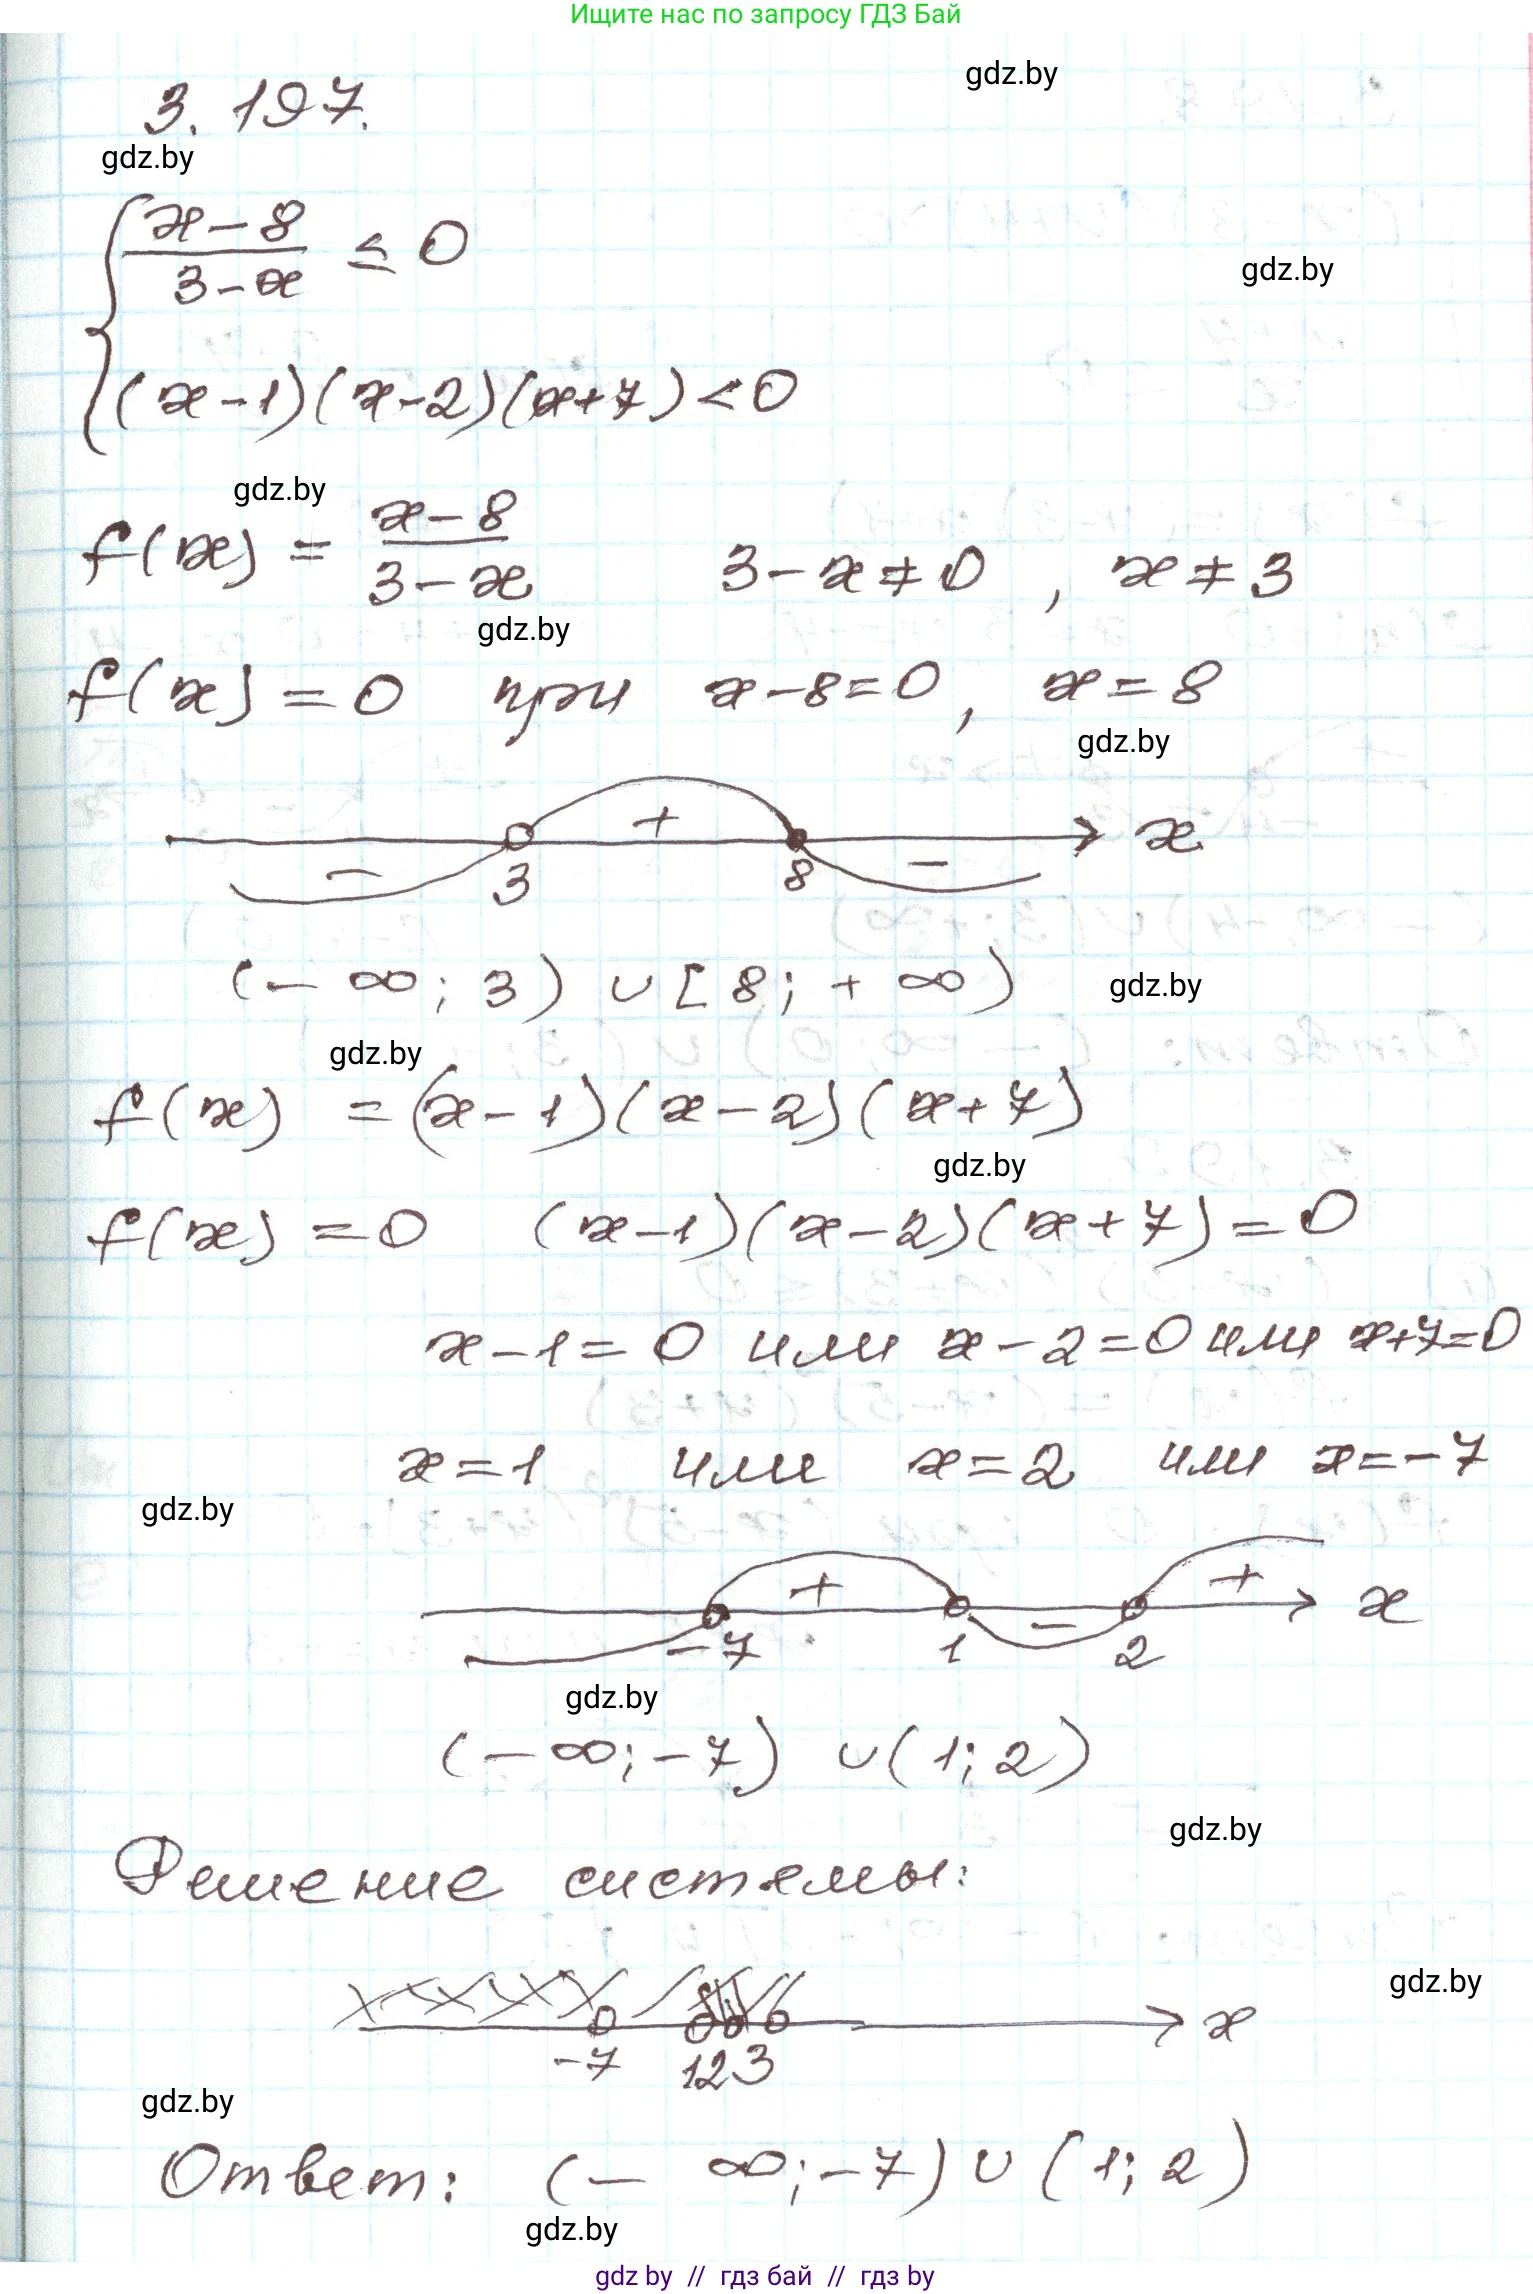 Ищите нас по запросу ГДЗ Бай
gdz.by
3.197.
gdz.by
x-8
3-x ≤ 0
gdz.by
(x-1)(x-2)(x+7)<0
gdz.by
f(x) = x-8
3-x 3-x≠0, x≠3
gdz.by
f(x)=0 при x-8=0, x=8
gdz.by
+ x
- 3 8 -
(-∞; 3) ∪ [8; +∞)
gdz.by
gdz.by
f(x) =(x-1)(x-2)(x+7)
gdz.by
f(x)=0 (x-1)(x-2)(x+7)=0
x-1=0 или x-2=0 или x+7=0
x=1 или x=2 или x=-7
gdz.by
+ - + x
-7 1 2
gdz.by
(-∞; -7) ∪ (1; 2)
gdz.by
Решение системы:
gdz.by
x
-7 1 2 3
gdz.by
Ответ: (-∞; -7) ∪ (1; 2)
gdz.by
gdz by // гдз бай // гдз by